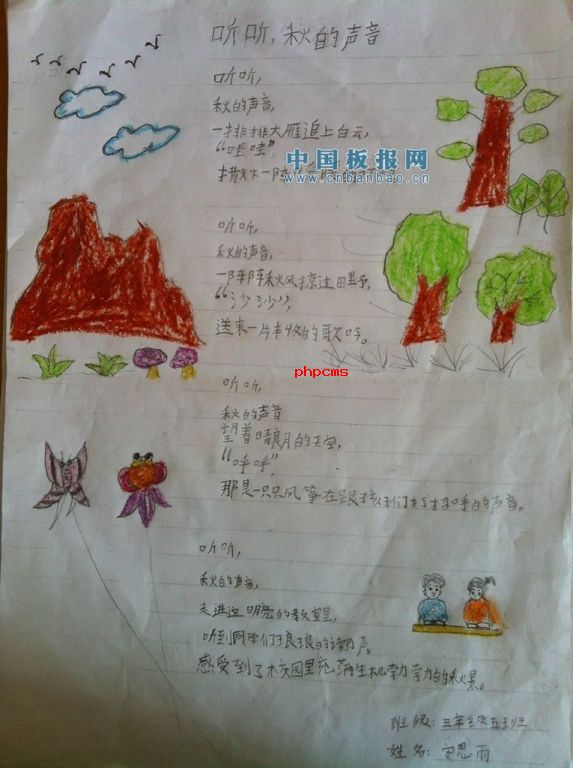 听听,秋的声音
听听,
秋的声音,
一排排大雁追上白云,
“哇哇”,
撒下一阵
中国板报网
www.cnbanbao.cn
听听,
秋的声音,
一阵阵秋风掠过田野,
“沙沙”,
送来一片丰收的歌吟。
phpcms
听听,
秋的声音
望着晴朗的天空,
“呼呼”,
那是一只只风筝在跟孩子们打招呼的声音。
听听,
秋的声音,
走进这明亮的教室里,
听到同学们琅琅的读书声。
感受到了校园里充满生机勃勃的秋景。
班级:三年级五班
姓名:安思雨